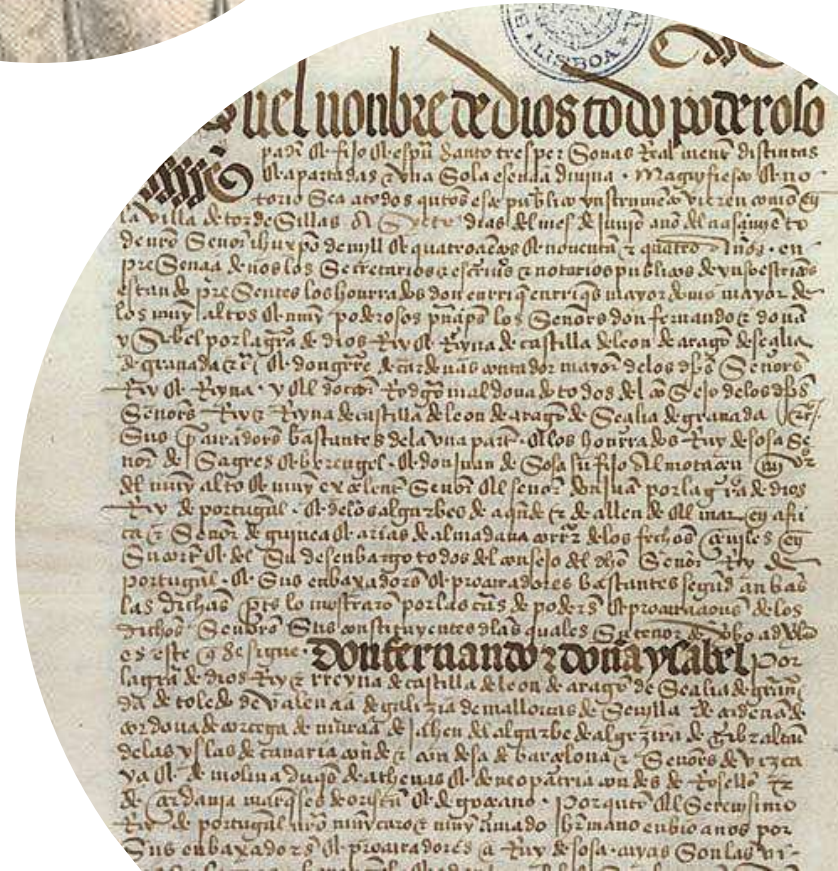 LISBOA
Enel nonbre de dios todo poderoso
padre & fijo & espũ santo tres personas Real mente distintas
& apartadas & vna Sola esencia diujna · Magnyfiesto & no
torio Sea a todos quãtos este publico ynstrumẽto vieren como en
la villa de tordeSillas A Syete dias del mes de junyo año del nasçimiẽto
de nrõ Señor ihũ xpõ de mill & quatroçiẽtos & noventa & quatro años · en
preSençia de nos los Secretarios & escriuãs & notarios publicos de yuso escriptos
estando preSentes los honrrados don enrriq enrriqs mayordomo mayor de
los muy altos & muy poderosos prĩçips los Señors don fernando & doña
ySabel por la grã de dios Rey & Reyna de castilla de leon de aragõ de seçilia
de granada &c & don gutrre de cardenas contador mayor de los dhõs Señors
Rey & Reyna · y El doctor Rodgõ maldonado todos del cõSejo de los dhõs
Señors Rey & Reyna de castilla de leon de aragõ de Seçilia de granada &c
Sus procuradors bastantes de la vna part · & los honrrados Ruy de sosa Se
ñor de Sagres & berengel · & don juan de Sosa su fijo Almotaçen mor
del muy alto & muy exçelente Señor El señor don juã por la grã de dios
Rey de portugal · & de los algarbes de aquẽde & de allende El mar en afri
ca & Señor de guinea & arias de almadana corr de los fechos çiujles en
Su corte & del Su desenbargo todos del consejo del dhõ Señor Rey de
portugal · & Sus enbaxadors & procuradores bastantes segũd anbas
las dichas ptes lo mostrarõ por las cãs de poders & procuraçions de los
dichos Señors Sus constituyentes de las quales Su tenor
es este q se sigue · Don fernando & doña ysabel por
la grã de dios Rey & rreyna de castilla de leon de aragõ de Seçilia de grana
da de toledo de valençia de galizia de mallorcas de Sevilla de çerdeña de
cordoua de corçega de murçia de jahen del algarbe de algezira de gibraltar
de las yslas de canaria conde & condesa de barçelona & Señors de vizca
ya & de molina duqs de athenas & de neopatria condes de Rosellõ &
de çerdania marqses de oristã & de goçiano · Por quãto El Serenisimo
Rey de portugal nrõ muy caro & muy amado hermano enbio a nos por
Sus enbaxadors & procuradores a Ruy de sosa · cuyas Son las vi-